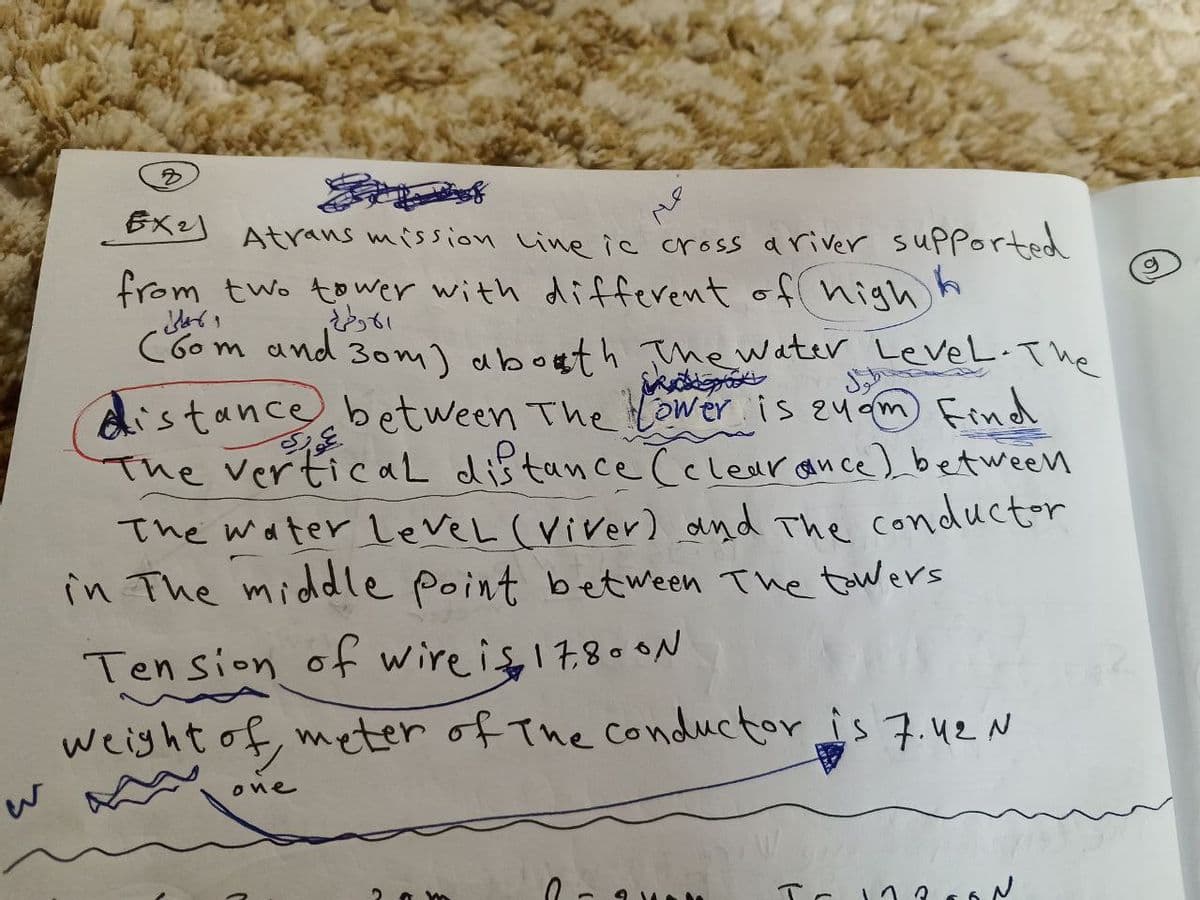 8
EX2) A trans mission line ic cross a river supported
from two tower with different of high h
(60m and 30m) abouth The water LeveL. The
distance between The tower is 240m Find
طول
The verticaL distance (clearance) between
The water LeveL (river) and The conductor
in The middle point between The towers
Tension of wire is 17,800N
weight of, meter of The conductor is 7.42 N
one
w
9